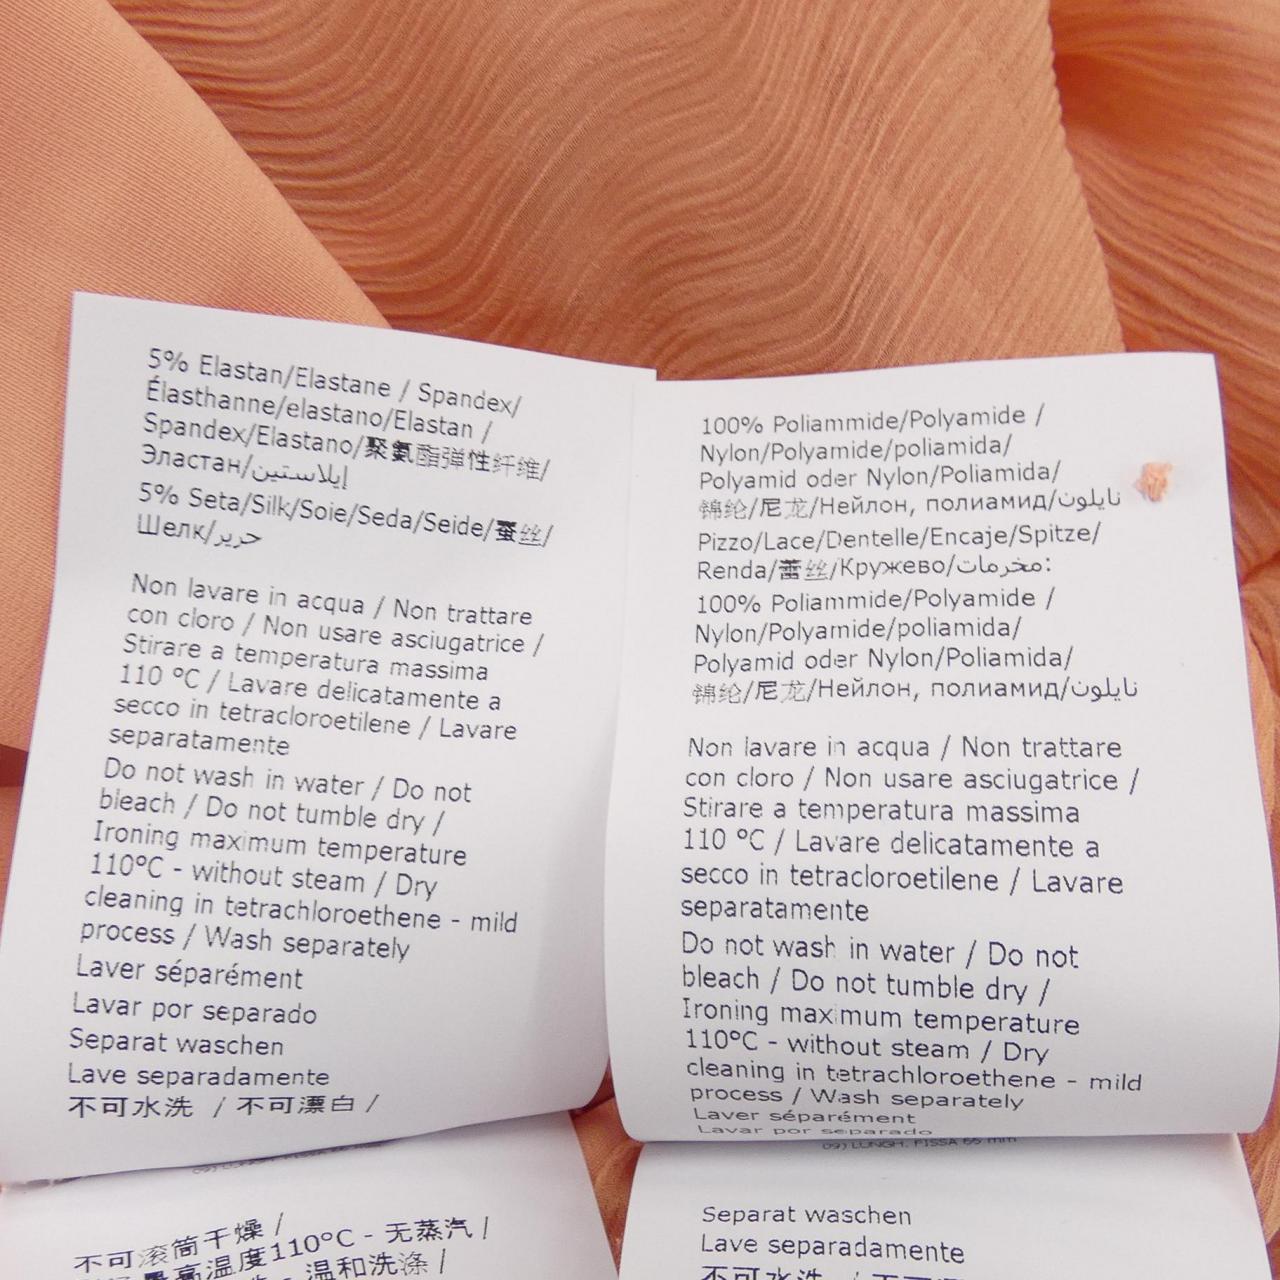 5% Elastan/Elastane / Spandex/
Élasthanne/elastano/Elastan /
Spandex/Elastano/聚氨酯弹性纤维/
Эластан/إيلاستين
5% Seta/Silk/Soie/Seda/Seide/蚕丝/
Шелк/حرير
Non lavare in acqua / Non trattare
con cloro / Non usare asciugatrice /
Stirare a temperatura massima
110 °C / Lavare delicatamente a
secco in tetracloroetilene / Lavare
separatamente
Do not wash in water / Do not
bleach / Do not tumble dry /
Ironing maximum temperature
110°C - without steam / Dry
cleaning in tetrachloroethene - mild
process / Wash separately
Laver séparément
Lavar por separado
Separat waschen
Lave separadamente
不可水洗 / 不可漂白 /
不可滚筒干燥 /
最高温度110°C - 无蒸汽 /
- 温和洗涤 /
100% Poliammide/Polyamide /
Nylon/Polyamide/poliamida/
Polyamid oder Nylon/Poliamida/
锦纶/尼龙/Нейлон, полиамид/نايلون
Pizzo/Lace/Dentelle/Encaje/Spitze/
Renda/蕾丝/Кружево/مخرمات:
100% Poliammide/Polyamide /
Nylon/Polyamide/poliamida/
Polyamid oder Nylon/Poliamida/
锦纶/尼龙/Нейлон, полиамид/نايلون
Non lavare in acqua / Non trattare
con cloro / Non usare asciugatrice /
Stirare a temperatura massima
110 °C / Lavare delicatamente a
secco in tetracloroetilene / Lavare
separatamente
Do not wash in water / Do not
bleach / Do not tumble dry /
Ironing maximum temperature
110°C - without steam / Dry
cleaning in tetrachloroethene - mild
process / Wash separately
Laver séparément
Lavar por separado
09) LUNGH. FISSA 65 mm
Separat waschen
Lave separadamente
不可水洗 / 不可漂